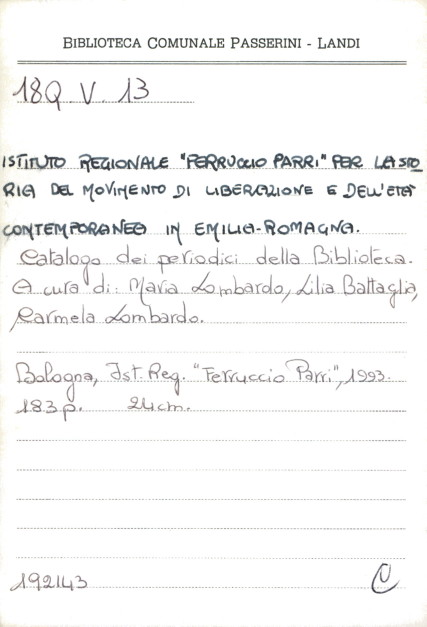 BIBLIOTECA COMUNALE PASSERINI - LANDI
18Q. V. 13
ISTITUTO REGIONALE "FERRUCCIO PARRI" PER LA STO
RIA DEL MOVIMENTO DI LIBERAZIONE E DELL'ETÀ
CONTEMPORANEA IN EMILIA-ROMAGNA.
Catalogo dei periodici della Biblioteca.
A cura di: Maria Lombardo, Lilia Battaglia,
Carmela Lombardo.
Bologna, Ist. Reg. "Ferruccio Parri", 1993.
183 p. 24 cm.
192143